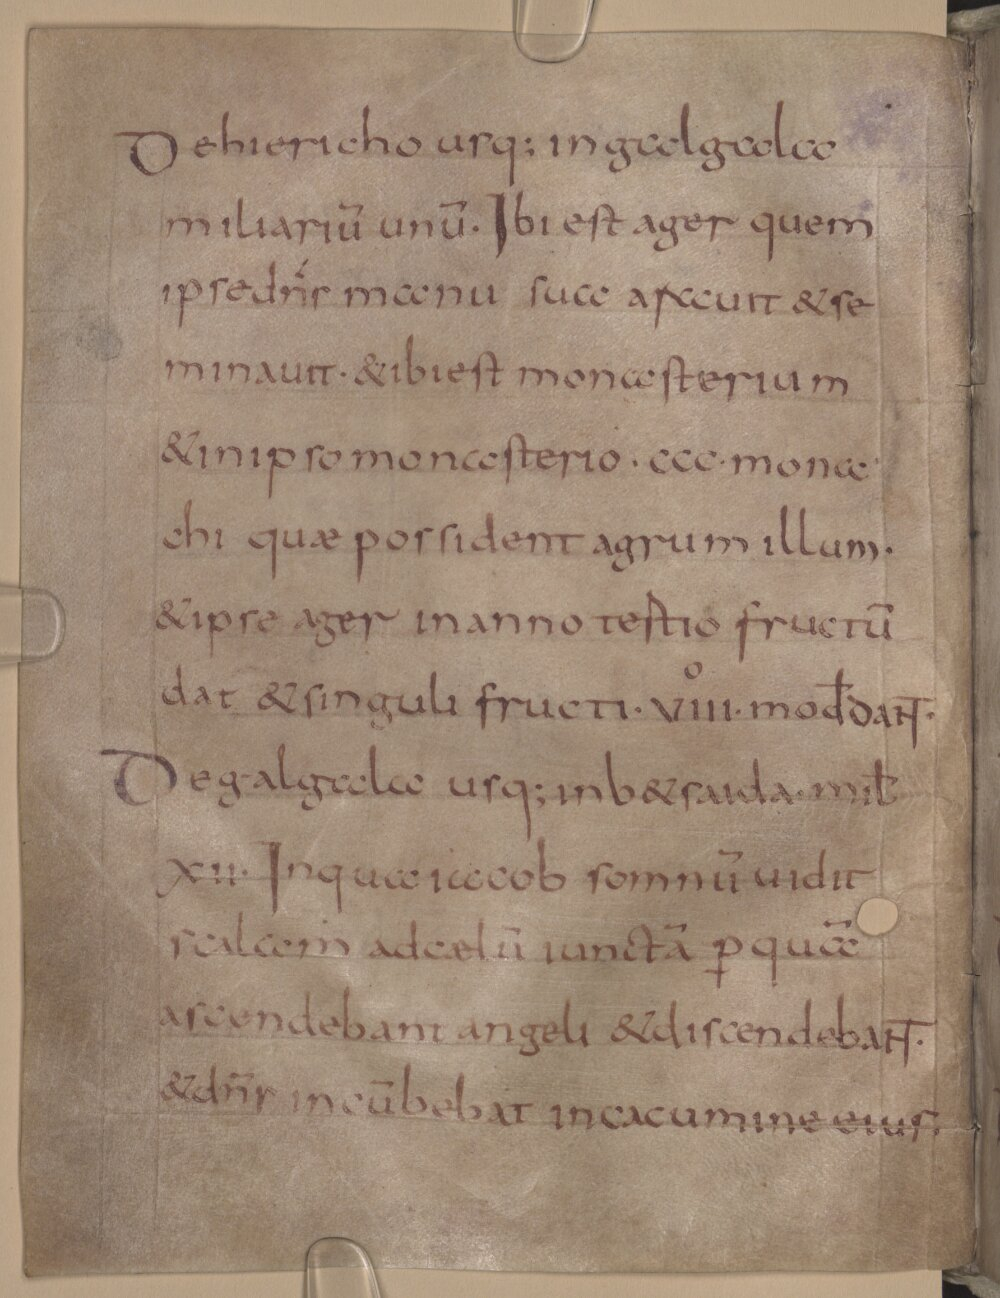 De hiericho usq; in galgala
miliariū unū. Ibi est ager quem
ipse dn̄s manu sua arauit & se
minauit · & ibi est monasterium
& in ipso monasterio · ccc · mona
chi quæ possident agrum illum ·
& ipse ager in anno testio fructū
dat & singuli fructi · VIIIͦ · mod̄ dant ·
De galgala usq; in b&saida · mil̄
XII · In qua iacob somnū uidit
scalam ad cælū iunctā ꝑ quā
ascendebant angeli & discendebant ·
& dn̄s incūbebat in cacumine eius ·